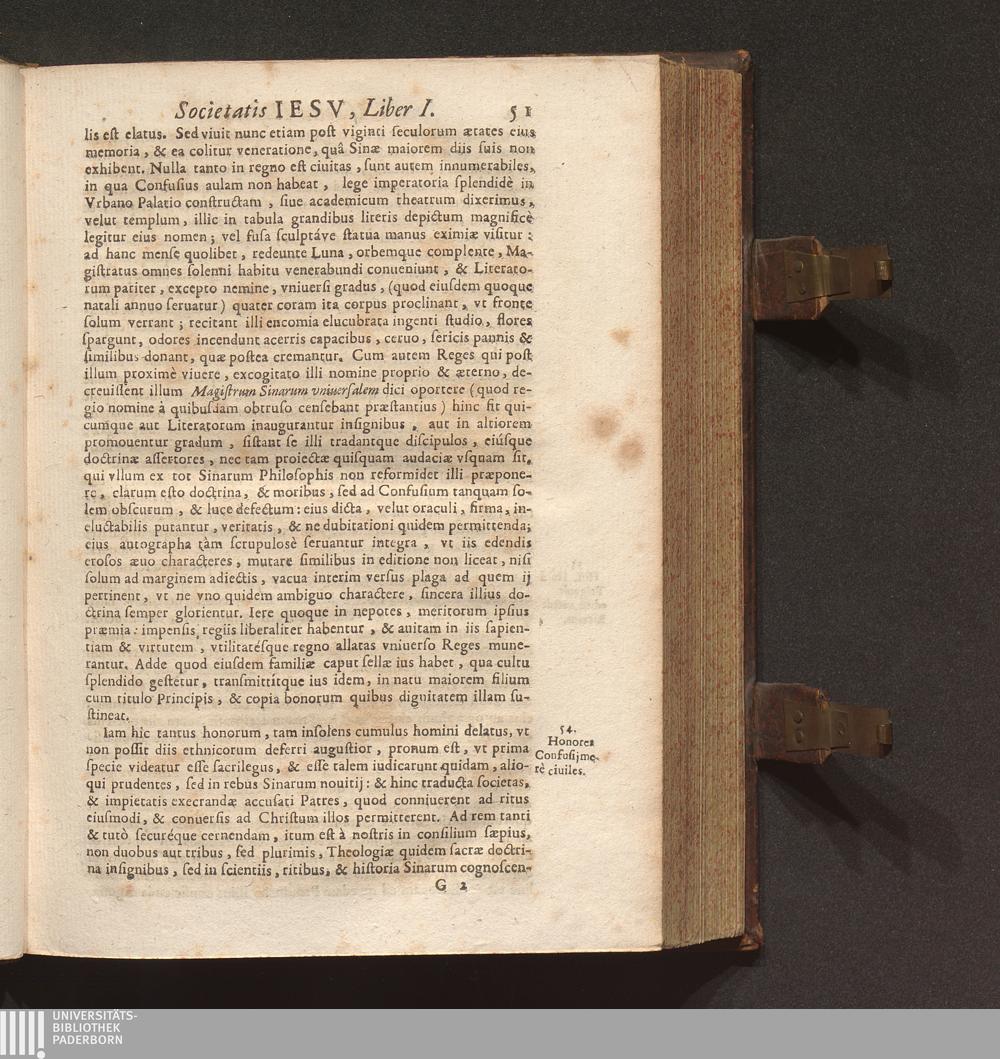 Societatis IESV, Liber I. 51
lis est elatus. Sed viuit nunc etiam post viginti seculorum ætates eius
memoria, & ea colitur veneratione, quâ Sinæ maiorem diis suis non
exhibent. Nulla tanto in regno est ciuitas, sunt autem innumerabiles,
in qua Confusius aulam non habeat, lege imperatoria splendidè in
Vrbano Palatio constructam, siue academicum theatrum dixerimus,
velut templum, illic in tabula grandibus literis depictum magnificè
legitur eius nomen; vel fusa sculptáve statua manus eximiæ visitur:
ad hanc mense quolibet, redeunte Luna, orbemque complente, Ma-
gistratus omnes solenni habitu venerabundi conueniunt, & Literato-
rum pariter, excepto nemine, vniuersi gradus, (quod eiusdem quoque
natali annuo seruatur) quater coram ita corpus proclinant, vt fronte
solum verrant; recitant illi encomia elucubrata ingenti studio, flores
spargunt, odores incendunt acerris capacibus, ceruo, sericis pannis &
similibus donant, quæ postea cremantur. Cum autem Reges qui post
illum proximè viuere, excogitato illi nomine proprio & æterno, de-
creuissent illum Magistrum Sinarum vniuersalem dici oportere (quod re-
gio nomine à quibusdam obtruso censebant præstantius) hinc fit qui-
cumque aut Literatorum inaugurantur insignibus, aut in altiorem
promouentur gradum, sistant se illi tradantque discipulos, eiúsque
doctrinæ assertores, nec tam proiectæ quisquam audaciæ vsquam sit,
qui vllum ex tot Sinarum Philosophis non reformidet illi præpone-
re, clarum esto doctrina, & moribus, sed ad Confusium tanquam so-
lem obscurum, & luce defectum: eius dicta, velut oraculi, firma, in-
eluctabilis putantur, veritatis, & ne dubitationi quidem permittenda;
eius autographa tàm scrupulosè seruantur integra, vt iis edendis
erosos æuo characteres, mutare similibus in editione non liceat, nisi
solum ad marginem adiectis, vacua interim versus plaga ad quem ij
pertinent, vt ne vno quidem ambiguo charactere, sincera illius do-
ctrina semper glorientur. Iere quoque in nepotes, meritorum ipsius
præmia: impensis regiis liberaliter habentur, & auitam in iis sapien-
tiam & virtutem, vtilitatésque regno allatas vniuerso Reges mune-
rantur. Adde quod eiusdem familiæ caput sellæ ius habet, qua cultu
splendido gestetur, transmittitque ius idem, in natu maiorem filium
cum titulo Principis, & copia bonorum quibus dignitatem illam su-
stineat.
Iam hic tantus honorum, tam insolens cumulus homini delatus, vt
non possit diis ethnicorum deferri augustior, pronum est, vt prima
specie videatur esse sacrilegus, & esse talem iudicarunt quidam, alio-
qui prudentes, sed in rebus Sinarum nouitij: & hinc traducta societas,
& impietatis execrandæ accusati Patres, quod conniuerent ad ritus
eiusmodi, & conuersis ad Christum illos permitterent. Ad rem tanti
& tutò securéque cernendam, itum est à nostris in consilium sæpius,
non duobus aut tribus, sed plurimis, Theologiæ quidem sacræ doctri-
na insignibus, sed in scientiis, ritibus, & historia Sinarum cognoscen-
G 2
54.
Honores
Confusij me-
rè ciuiles.
UNIVERSITÄTS-
BIBLIOTHEK
PADERBORN